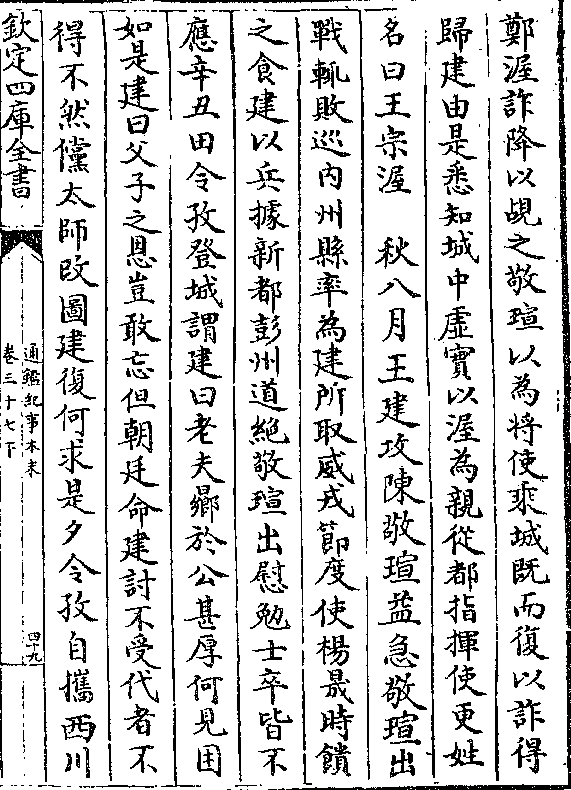 鄭渥詐降以覘之敬瑄以為將使乘城既而復以詐得
歸建由是悉知城中虛實以渥為親從都指揮使更姓
名曰王宗渥　秋八月王建攻陳敬瑄益急敬瑄出
戰輒敗巡内州縣率為建所取威戎節度使楊晟時饋
之食建以兵據新都彭州道絶敬瑄出慰勉士卒皆不
應辛丑田令孜登城謂建曰老夫鄉於公甚厚何見困
如是建曰父子之恩豈敢忘但朝廷命建討不受代者不
得不然儻太師改圖建復何求是夕令孜自攜西川
欽定四庫全書
通鑑紀事本末
卷三十七下
四十九